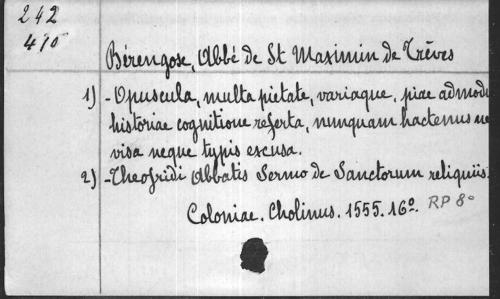 242
410
Bérengose, Abbé de St Maximin de Trêves
1) - Opuscula, multa pietate, variaque, piae admodu
historiae cognitione referta, nunquam hactenus ne
visa neque typis excusa.
2) - Theofridi Abbatis Sermo de Sanctorum reliquiis.
Coloniae. Cholinus. 1555. 16º. RP 8º